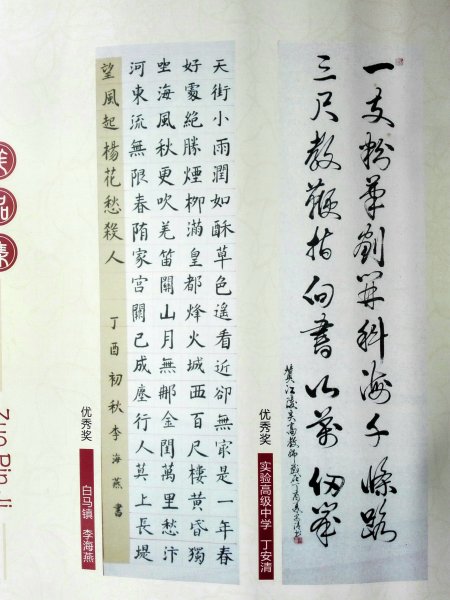 一支粉筆劃開科海千條路
三尺教鞭指向書山萬仞峯
优秀奖
实验高级中学 丁安清
天街小雨潤如酥草色遙看近卻無冣是一年春
好處絕勝煙柳滿皇都烽火城西百尺樓黃昏獨
坐海風秋更吹羌笛關山月無那金閨萬里愁汴
河東流無限春隋家宮闕已成塵行人莫上長堤
望風起楊花愁殺人 丁酉初秋李海燕書
优秀奖
白马镇 李海燕
作品集
Zuo Pin Ji